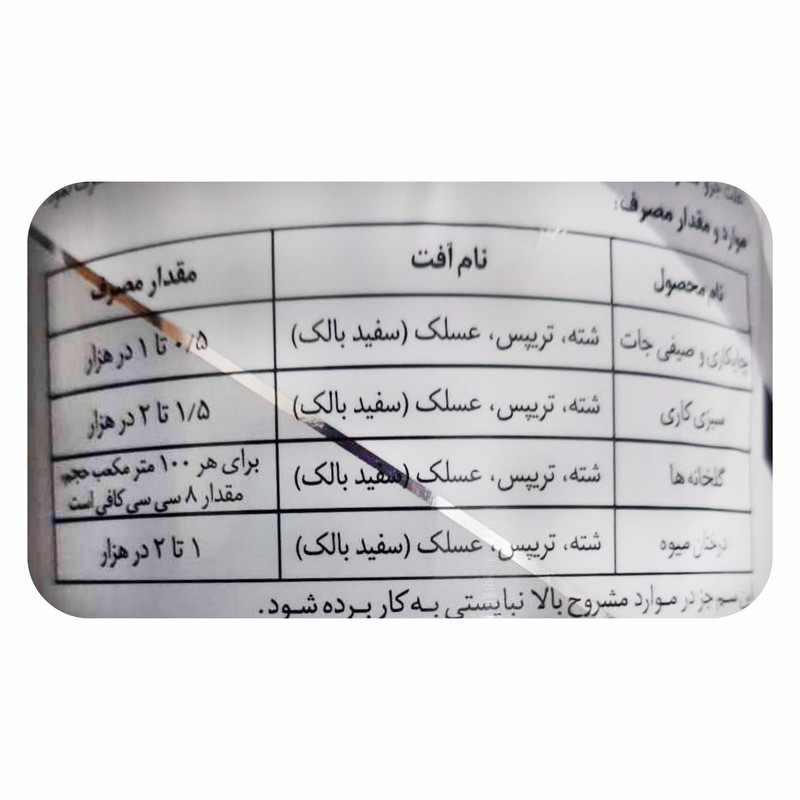 موارد و مقدار مصرف:
نام محصول نام آفت مقدار مصرف
جالیزکاری و صیفی جات شته، تریپس، عسلک (سفید بالک) ۰/۵ تا ۱ در هزار
سبزی کاری شته، تریپس، عسلک (سفید بالک) ۱/۵ تا ۲ در هزار
گلخانه ها شته، تریپس، عسلک (سفید بالک) برای هر ۱۰۰ متر مکعب حجم
مقدار ۸ سی سی کافی است
درختان میوه شته، تریپس، عسلک (سفید بالک) ۱ تا ۲ در هزار
این سم جز در موارد مشروح بالا نبایستی به کار برده شود.